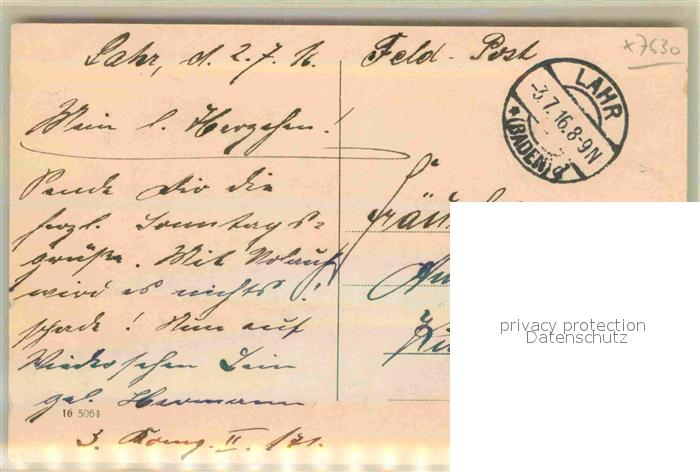 Lahr, d. 2.7.16.
Feld-Post
x7630
LAHR
-3.7.16.8-9N
*(BADEN)d
Mein l. Herzchen!
Sende Dir die
herzl. Sonntags=
grüße. Mit Urlaub
wird es nichts!
schade! Nun auf
Wiedersehen Dein
gel. Hermann
16 5064
3. Komp. II.
privacy protection
Datenschutz